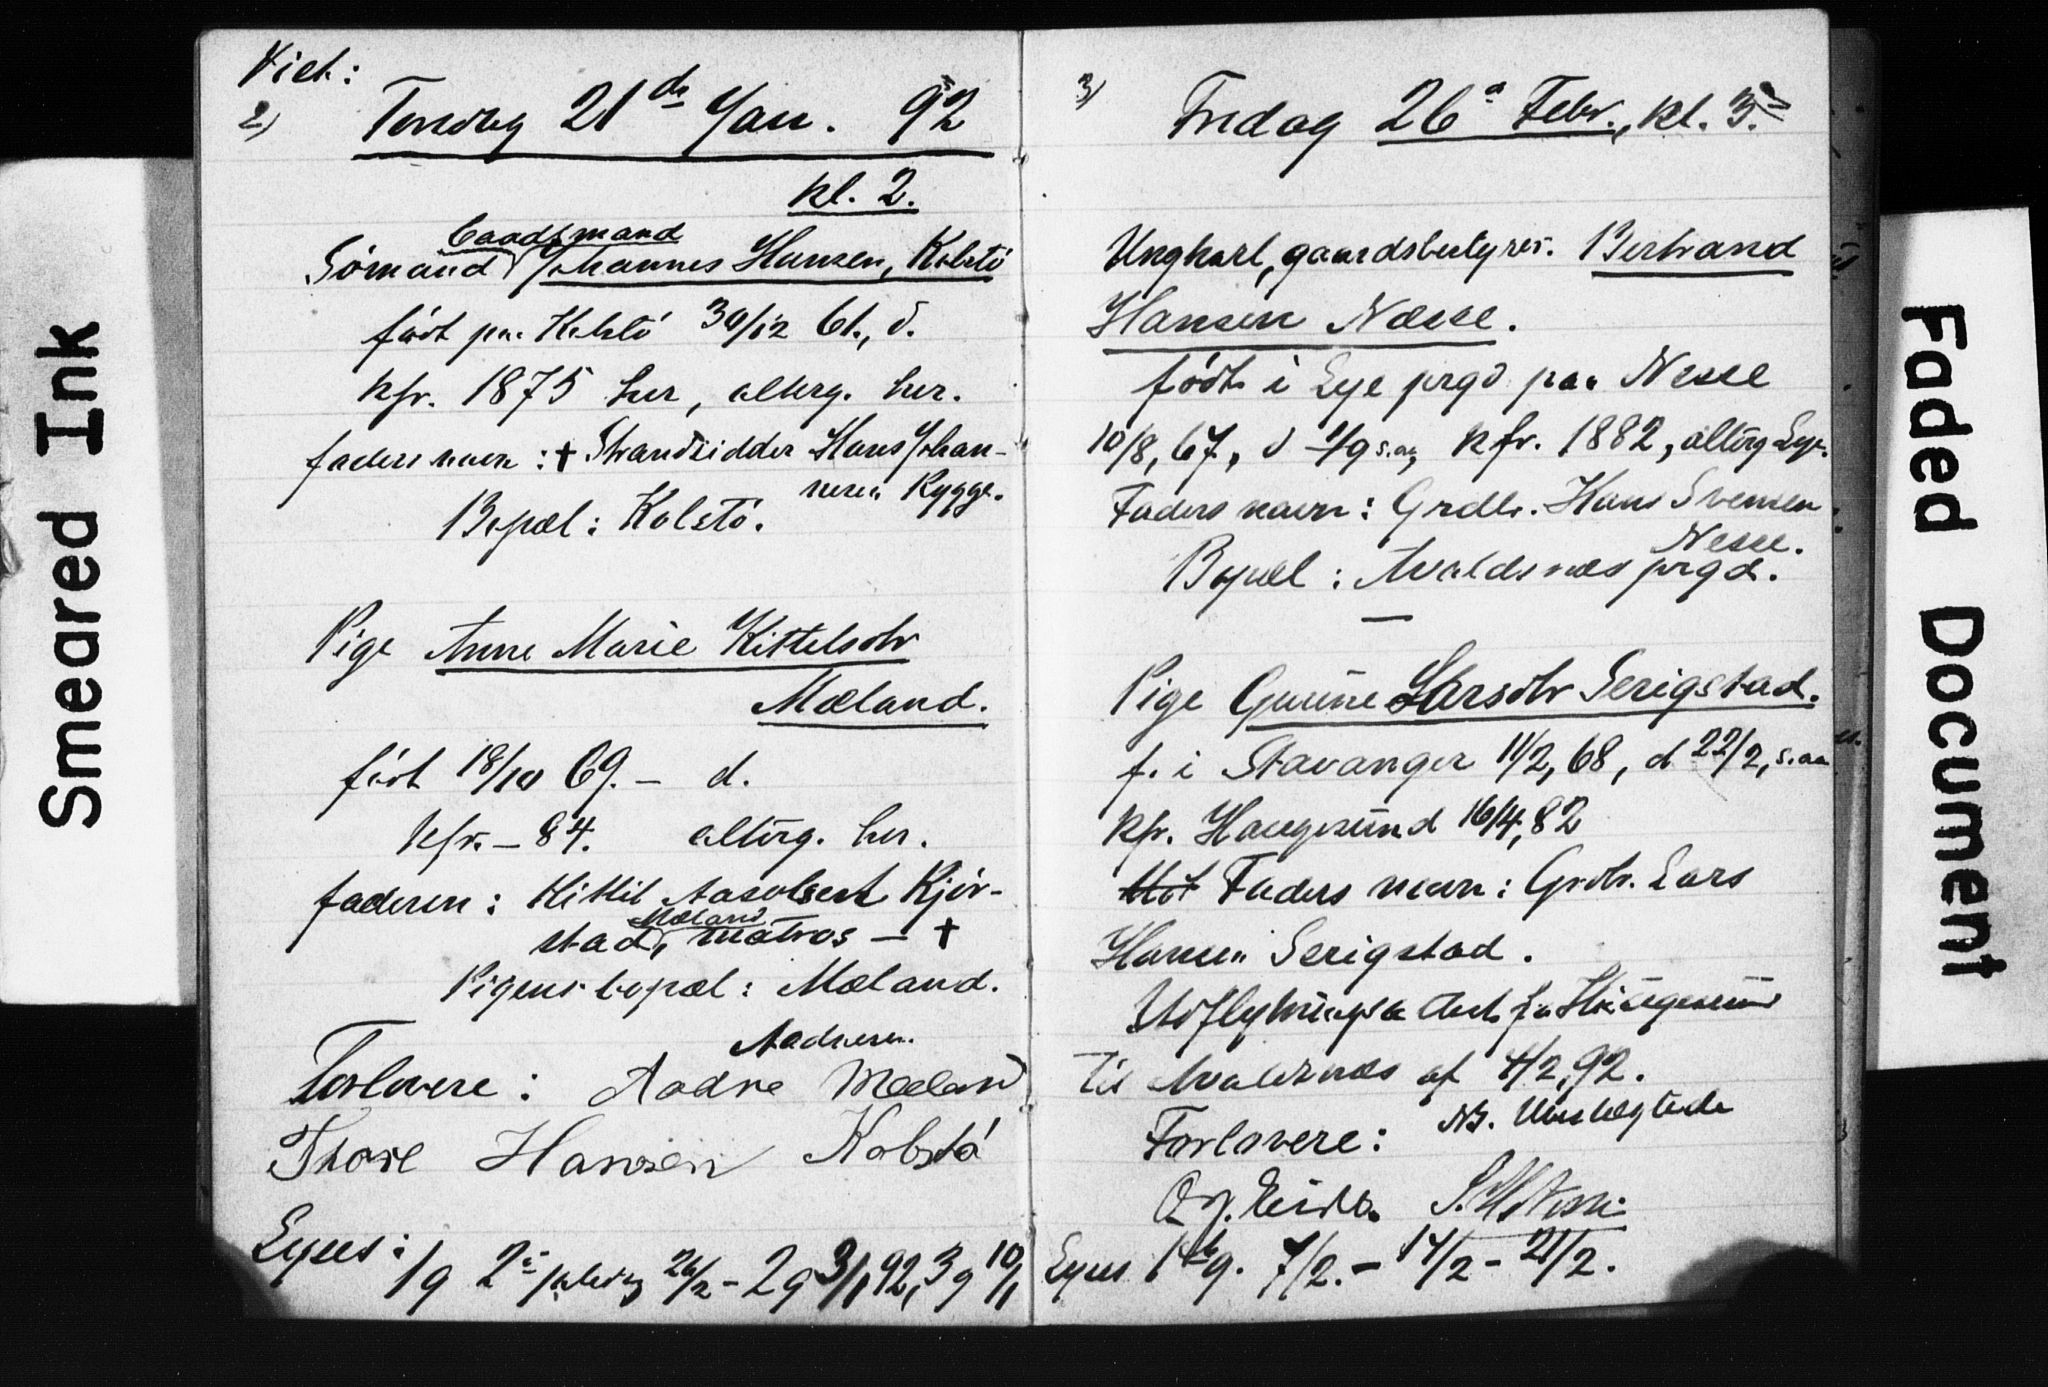 Smeared Ink
Viet:
2) Torsdag 21de Jan. 92
kl. 2.
baadsmand
Sømand Johannes Hansen, Kolstø
født paa Kolstø 30/12 61., d.
kfr. 1875 her, alterg. her.
faders navn: † Strandsidder Hans Johan-
nesen Rygge.
Bopæl: Kolstø.
Pige Anne Marie Kittelsdtr
Mæland.
født 18/10 69. – d.
kfr. – 84. altrg. her.
faderen: Kittil Aasolbert Kjør-
Mæland
stad, matros – †
Pigens bopæl: Mæland.
Aadnesen.
Forlovere: Aadne Mæland
Thore Hansen Kolstø
Lyses: 1g 2 juledag 26/12 – 2g 3/1 92, 3g 10/1
3) Fredag 26d Febr., kl. 3.
Ungkarl, gaardsbestyrer. Bertrand
Hansen Nesse.
født i Lye prgd paa Nesse
10/8, 67, d 1/9 s.a., kfr. 1882, altrg Lye.
Faders navn: Grdbr. Hans Svensen
Nesse.
Bopæl: Avaldsnes prgd.
Pige Gurine Larsdtr Serigstad.
f. i Stavanger 11/2, 68, d 22/2, s.aa
kfr. Haugesund 16/4, 82
Faders navn: Grdbr. Lars
Hansen Serigstad.
Udflytningsattest fra Haugesund
til Avaldsnæs af 4/2, 92.
NB. Ubeslægtede
Forlovere:
Lyses 1ste g. 7/2. – 14/2 – 21/2.
Faded Document